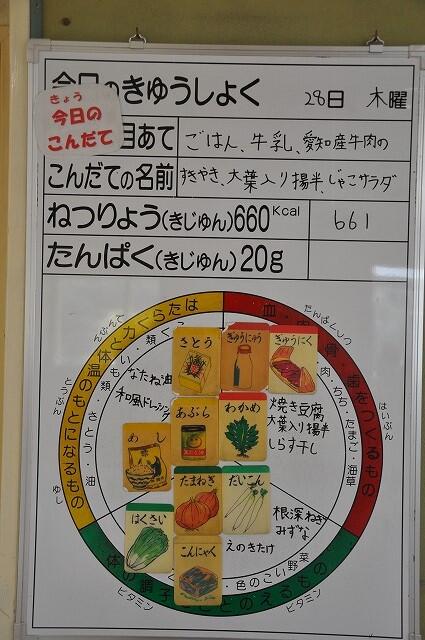 今日のきゅうしょく 28日 木曜
きょう
今日の
こんだて
目あて ごはん、牛乳、愛知産牛肉の
こんだての名前 すきやき、大葉入り揚半、じゃこサラダ
ねつりょう(きじゅん)660Kcal 661
たんぱく(きじゅん)20g
熱や力くらたは
体温のもとになるもの
血・肉・骨・歯をつくるもの
たんぱくしつ
とうぶん
ゆし
はいぶん
さとう
ぎゅうにゅう
ぎゅうにく
なたね油
和風ドレッシング
いも類・さとう・油
肉・ちち・たまご・海草
あぶら
わかめ
焼き豆腐
大葉入り揚半
しらす干し
めし
たまねぎ
だいこん
はくさい
根深ねぎ
みずな
えのきたけ
こんにゃく
色のこい野菜
体の調子をととのえるもの
ビタミン
ビタミン